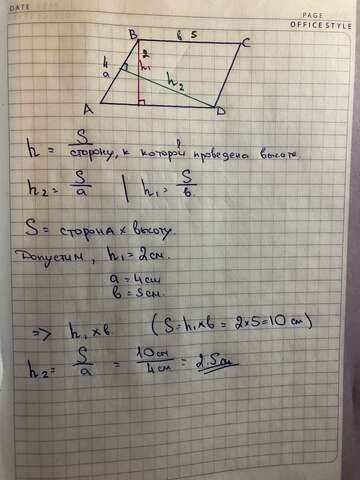 DATE
PAGE
OFFICE STYLE
B в 5 C
4 2
a h₁ h₂
A D
h = S / сторону, к которой проведена высота.
h₂ = S / a | h₁ = S / в.
S = сторона × высоту.
Допустим, h₁ = 2 см.
a = 4 см
в = 5 см.
=> h₁ × в. (S = h₁ × в = 2 × 5 = 10 см)
h₂ = S / a = 10 см / 4 см = 2.5 см